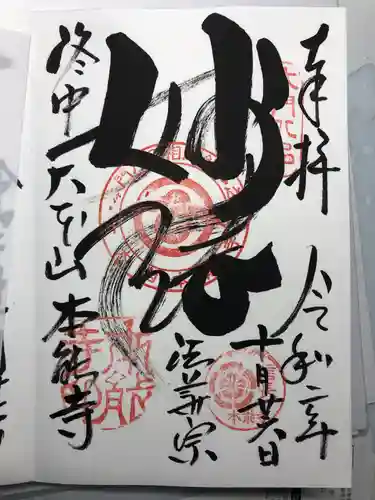 奉拝
令和二年
十月廿六日
妙法
法華宗
洛中大本山本能寺